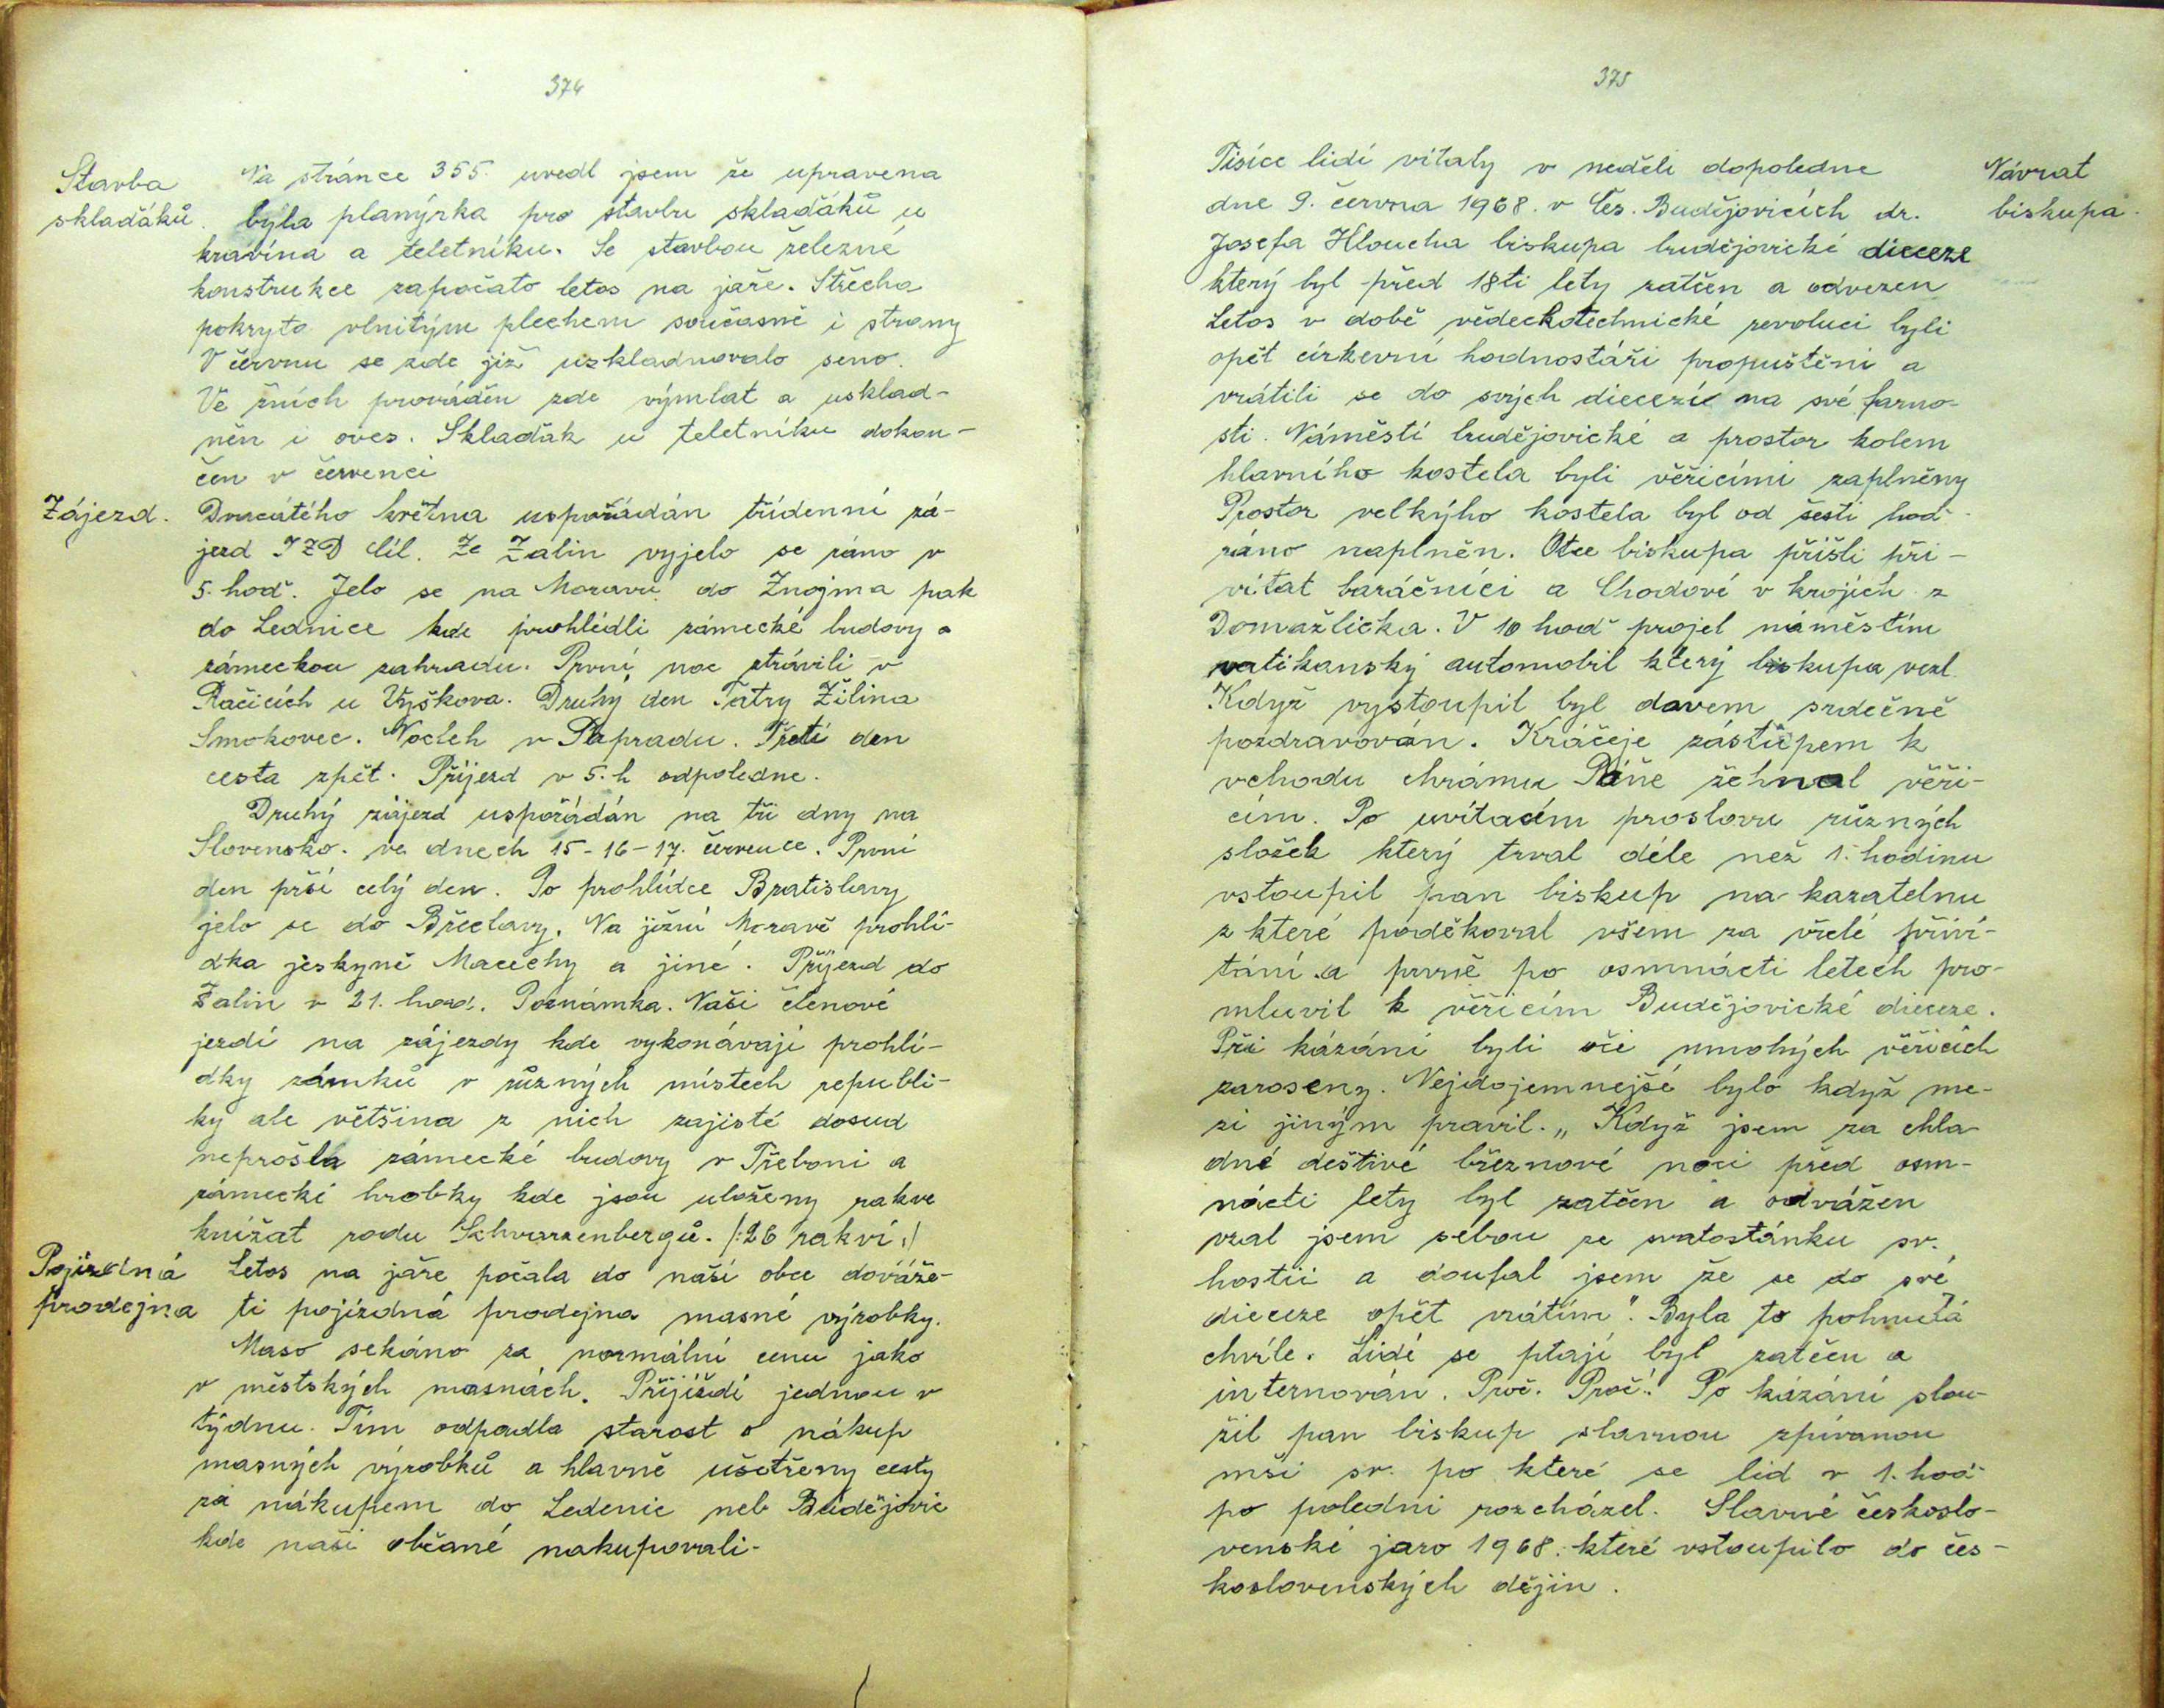 374
Stavba
skladáků.
Na stránce 355. uvedl jsem že upravena
byla planýrka pro stavbu skladáků u
kravína a teletníku. Se stavbou železné
konstrukce započato letos na jaře. Střecha
pokryta vlnitým plechem současně i strany
V červnu se zde již uzkladnovalo seno.
Ve žních prováděn zde výmlat a usklad-
něn i oves. Skladák u teletníku dokon-
čen v červenci
Zájezd.
Dvacátého května uspořádán třídenní zá-
jezd JZD Cíl. Ze Zalin vyjelo se ráno v
5. hod. Jelo se na Moravu do Znojma pak
do Lednice kde prohlédli zámecké budovy a
zámeckou zahradu. První noc ztrávili v
Račicích u Vyškova. Druhý den Tatry Žilina
Smokovec. Nocleh v Popradu. Třetí den
cesta zpět. Příjezd v 5. h odpoledne.
Druhý zájezd uspořádán na tři dny na
Slovensko. ve dnech 15-16-17. července. První
den prší celý den. Po prohlídce Bratislavy
jelo se do Břeclavy. Na jižní Moravě prohlí-
dka jeskyně Macechy a jiné. Příjezd do
Zalin v 21. hod. Poznámka. Naši členové
jezdí na zájezdy kde vykonávají prohlí-
dky zámků v různých místech republi-
ky ale většina z nich zajisté dosud
neprošla zámecké budovy v Třeboni a
zámecké hrobky kde jsou uloženy rakve
knížat rodu Schvarzenbergů. /:26 rakví:/
Pojízdná
prodejna
Letos na jaře počala do naší obce dováže-
ti pojízdná prodejna masné výrobky.
Maso sekáno za normální cenu jako
v městských masnách. Přijíždí jednou v
týdnu. Tím odpadla starost o nákup
masných výrobků a hlavně ušetřeny cesty
za nákupem do Ledenic neb Budějovic
kde naši občané nakupovali.
375
Návrat
biskupa.
Tisíce lidí vítaly v neděli dopoledne
dne 9. června 1968. v Čes. Budějovicích dr.
Josefa Hloucha biskupa budějovické dieceze
který byl před 18ti lety zatčen a odvezen
Letos v době vědeckotechnické revoluci byli
opět církevní hodnostáři propuštěni a
vrátili se do svých diecezíc na své farno-
sti. Náměstí budějovické a prostor kolem
hlavního kostela byli věřícími zaplněny
Prostor velkýho kostela byl od šesti hod.
ráno naplněn. Otce biskupa přišli při-
vítat baráčníci a Chodové v krojích z
Domažlicka. V 10 hod projel náměstím
vatikanský automobil který biskupa vezl.
Když vystoupil byl davem srdečně
pozdravován. Kráčeje zástupem k
vchodu chrámu Páně žehnal věří-
cím. Po uvítacím proslovu různých
složek který trval déle než 1. hodinu
vstoupil pan biskup na kazatelnu
z které poděkoval všem za vřelé přiví-
tání a prvně po osmnácti letech pro-
mluvil k věřícím Budějovické dieceze.
Při kázání byli oči mnohých věřících
zaroseny. Nejdojemnejšé bylo když me-
zi jiným pravil. „ Když jsem za chla-
dné deštivé březnové noci před osm-
nácti lety byl zatčen a odvážen
vzal jsem sebou ze svatostánku sv.
hostii a doufal jsem že se do své
dieceze opět vrátím". Byla to pohnutá
chvíle. Lidé se ptají byl zatčen a
internován. Proč. Proč? Po kázání slou-
žil pan biskup slavnou zpívanou
mši sv. po které se lid v 1. hod
po poledni rozcházel. Slavné českoslo-
venské jaro 1968. které vstoupilo do čes-
koslovenských dějin.